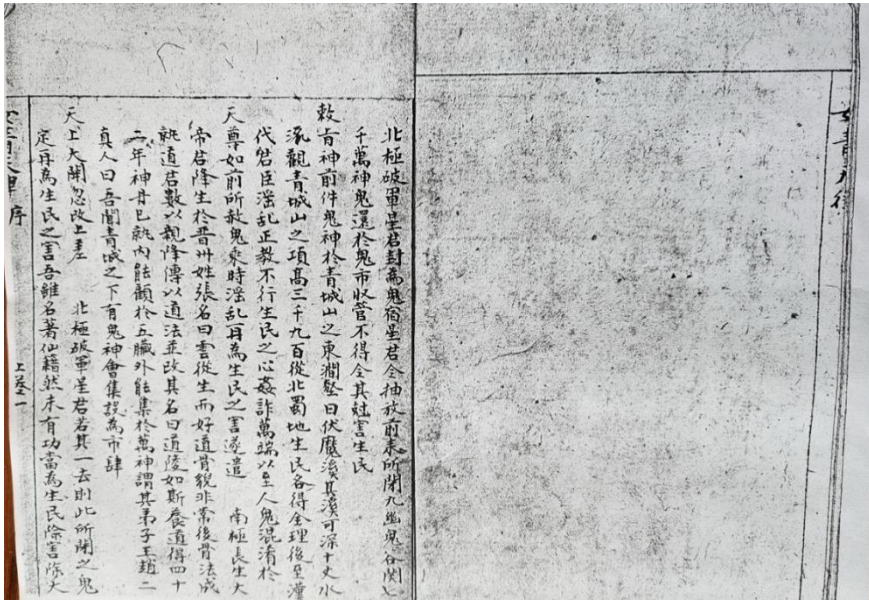 女青天律
北極破軍星君封為鬼宿星君令抽放前来所閉九幽鬼谷関七
千萬神鬼還於鬼市收管不得令其妖害生民
敕旨神前件鬼神於青城山之東澗壑曰伏魔溪其溪可深十丈水
流觀青城山之項高三千九百從北蜀地生民各得全理後至漢
代君臣淫乱正教不行生民之心姦詐萬端以至人鬼混淆於
天尊如前所赦鬼衆時淫乱再為生民之害遂遣 南極長生大
帝君降生於晋州姓張名曰雲從生而好道骨貌非常後骨法成
就道君數以親降傳以道法並改其名曰道陵如斯養道得四十
二年神丹已就内能顧於五臟外能集於萬神謂其弟子王趙二
真人曰吾聞青城之下有鬼神會集設為市肆
天上大開忽改上差 北極破軍星君若其一去則此所閉之鬼
定再為生民之害吾雖名著仙籍然未有功當為生民除害除大
女青天律 序
上卷一